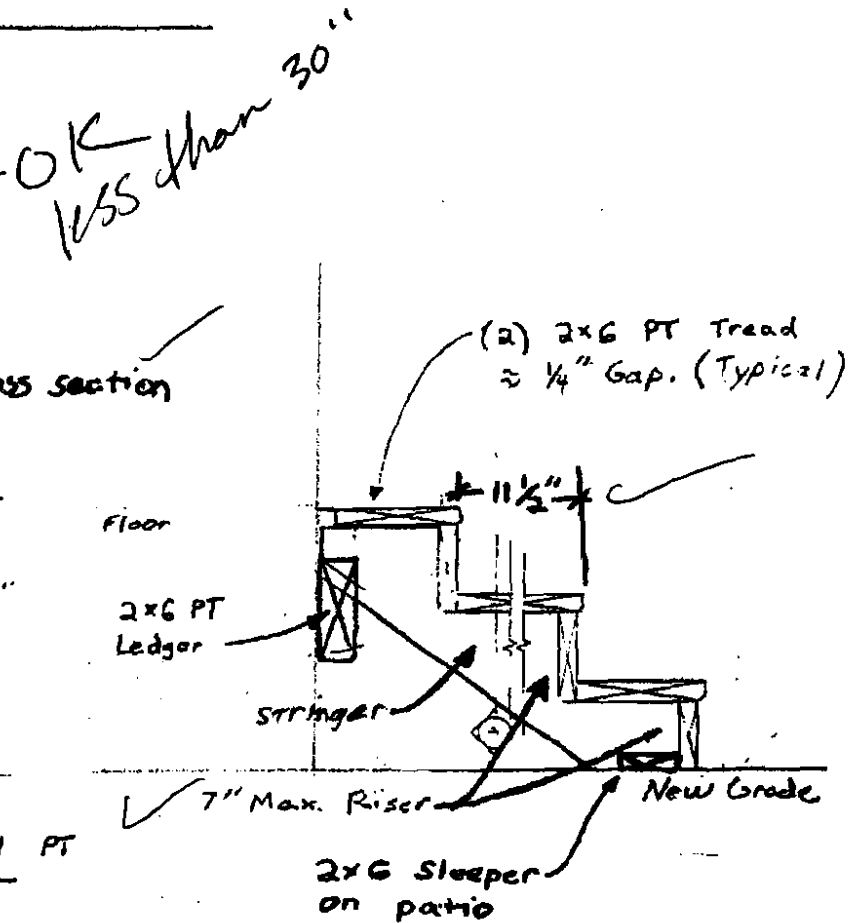 OK
less than 30"
(2) 2x6 PT Tread
≈ 1/4" Gap. (Typical)
section
11 1/2"
Floor
2x6 PT
Ledger
Stringer
7" Max. Riser
New Grade
PT
2x6 Sleeper
on patio